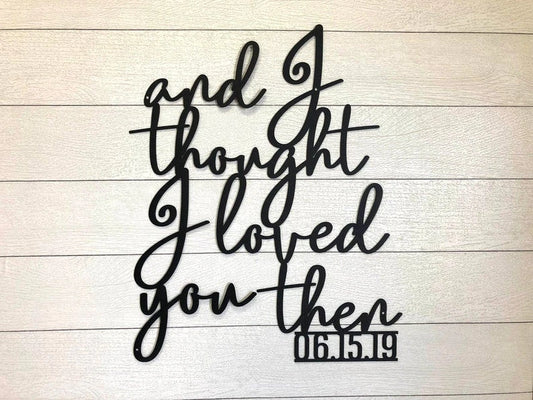 and I
thought
I loved
you then
06.15.19